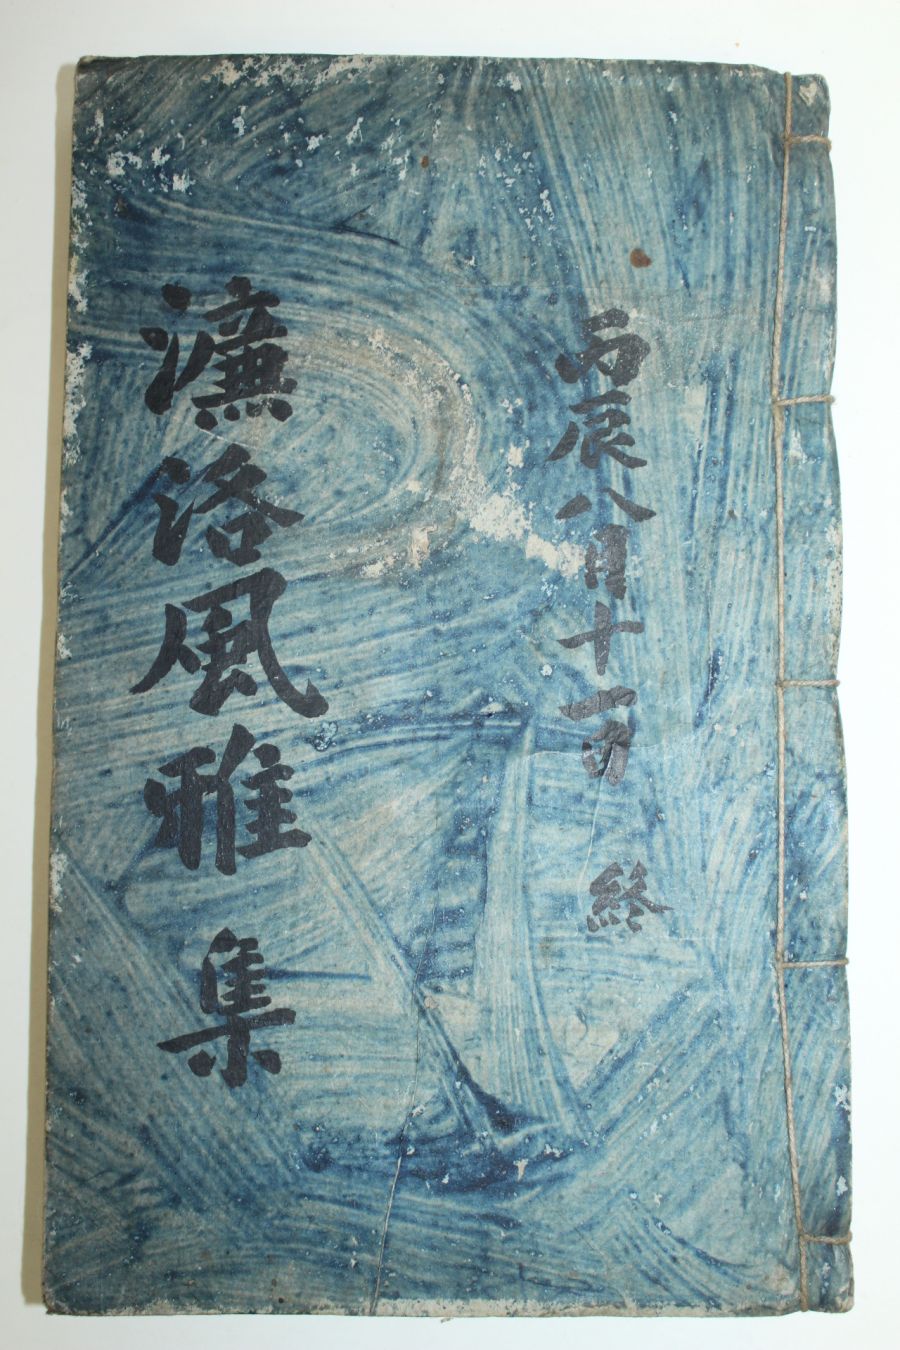 丙辰八月十一日 終
濂洛風雅 集